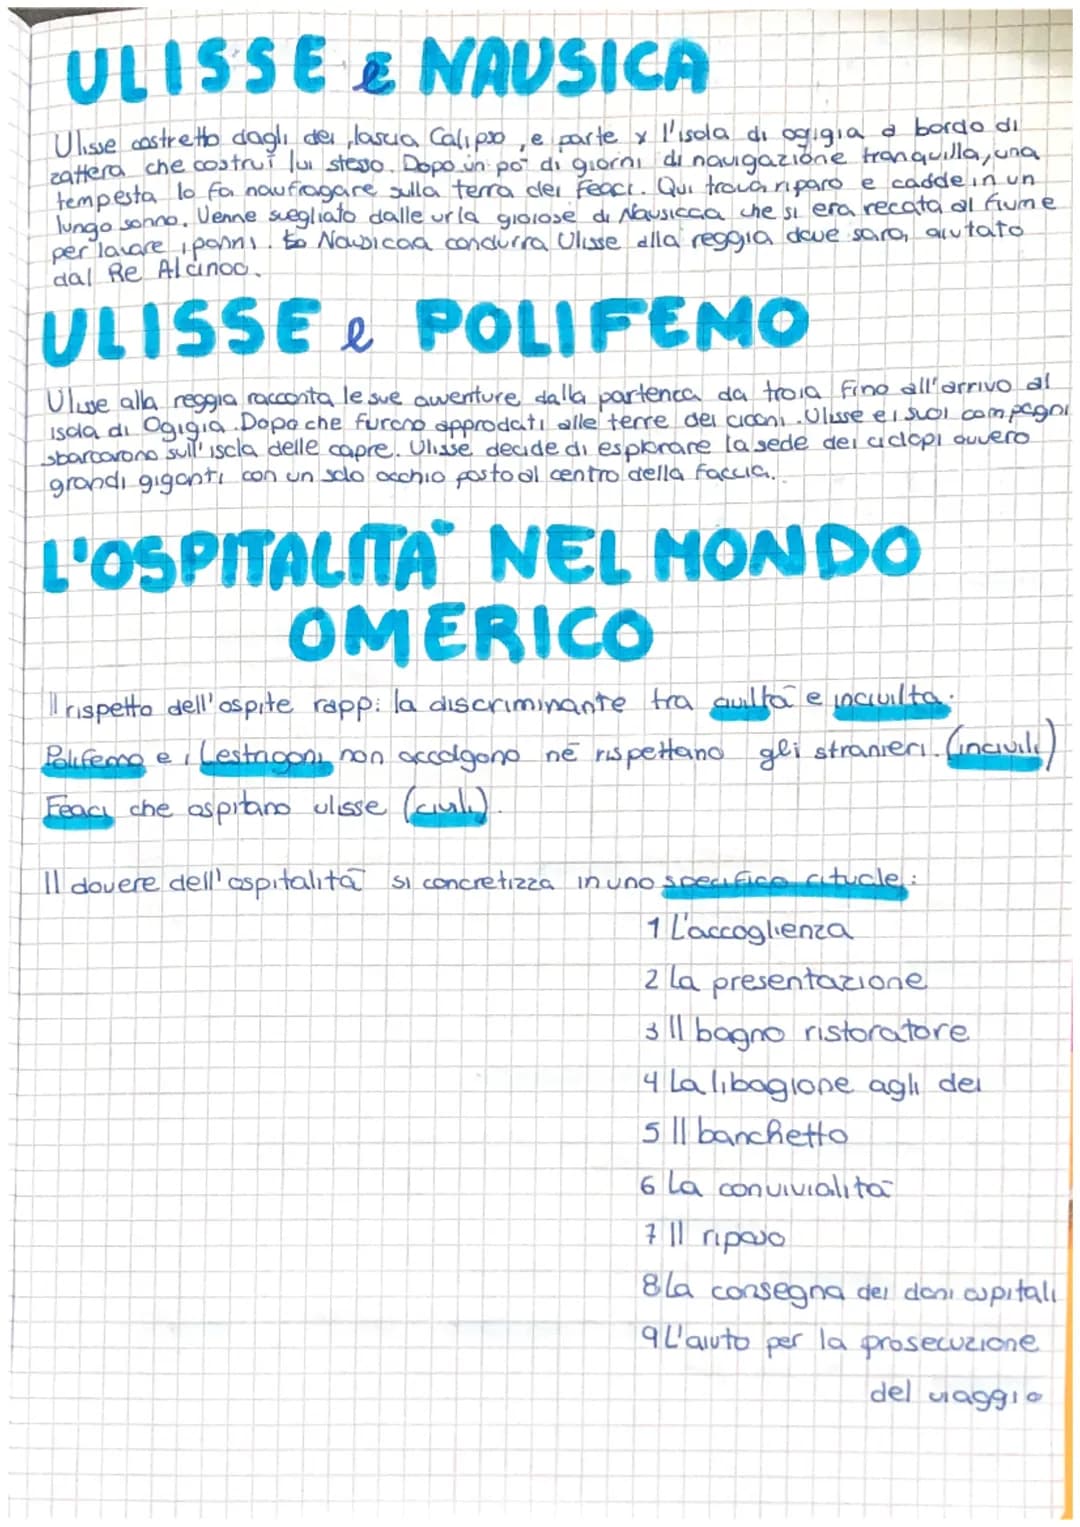 ULISSE e NAUSICA
Ulisse costretto dagli dei, lascia Calipso, e parte x l'isola di ogigia a bordo di
zattera che costruì lui stesso. Dopo un po' di giorni di navigazione tranquilla, una
tempesta lo fa naufragare sulla terra dei Feaci. Qui trova riparo e cadde in un
lungo sonno. Venne svegliato dalle urla gioiose di Nausicaa che si era recata al fiume
per lavare i panni. Nausicaa condurrà Ulisse alla reggia dove sarà aiutato
dal Re Alcinoo.
ULISSE e POLIFEMO
Ulisse alla reggia racconta le sue avventure dalla partenza da troia fino all'arrivo al
isola di Ogigia. Dopo che furono approdati alle terre dei ciconi. Ulisse e i suoi compagni
sbarcarono sull'isola delle capre. Ulisse decide di esplorare la sede dei ciclopi ovvero
grandi giganti con un solo occhio posto al centro della faccia.
L'OSPITALITÀ NEL MONDO
OMERICO
Il rispetto dell'ospite rapp: la discriminante tra civiltà e inciviltà.
Polifemo e i Lestrigoni non accolgono né rispettano gli stranieri. (incivili)
Feaci che ospitano ulisse (civili).
Il dovere dell'ospitalità si concretizza in uno specifico rituale:
1 L'accoglienza
2 La presentazione
3 Il bagno ristoratore
4 La libagione agli dei
5 Il banchetto
6 La convivialità
7 Il riposo
8 La consegna dei doni ospitali
9 L'aiuto per la prosecuzione
del viaggio